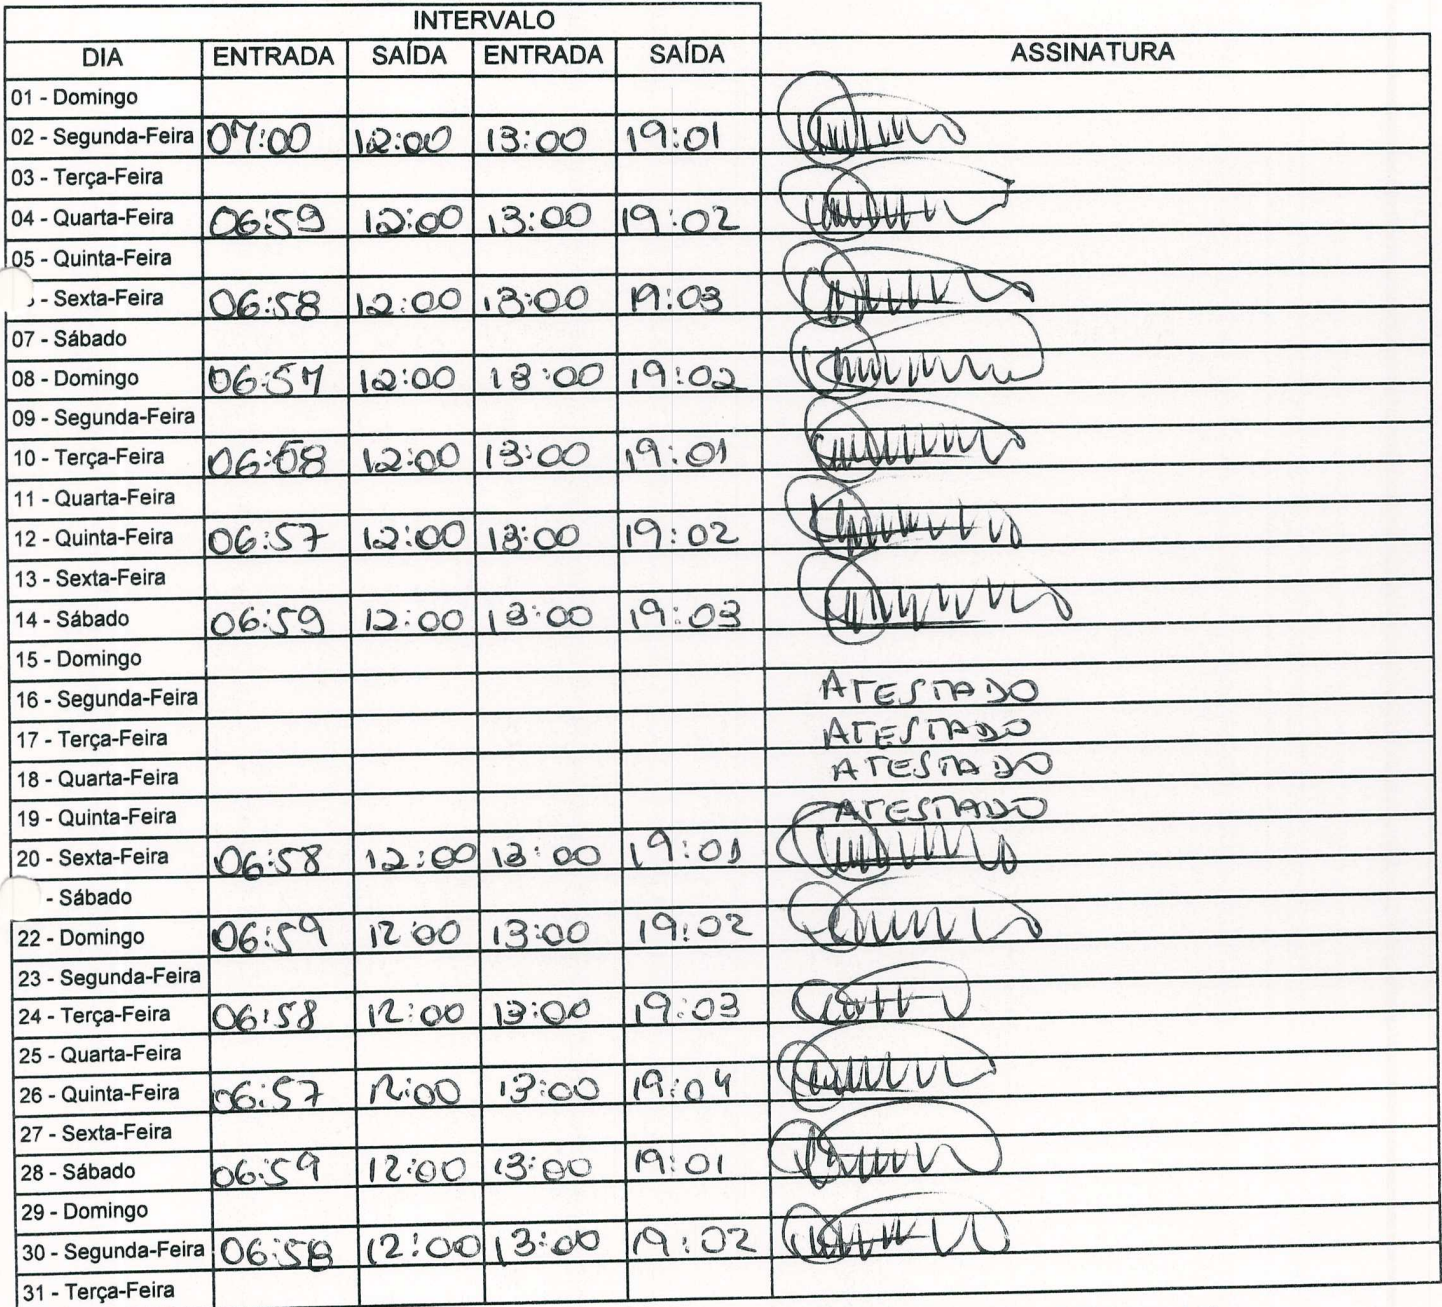 INTERVALO
DIA ENTRADA SAÍDA ENTRADA SAÍDA ASSINATURA
01 - Domingo
02 - Segunda-Feira 07:00 12:00 13:00 19:01
03 - Terça-Feira
04 - Quarta-Feira 06:59 12:00 13:00 19:02
05 - Quinta-Feira
- Sexta-Feira 06:58 12:00 13:00 19:03
07 - Sábado
08 - Domingo 06:57 12:00 13:00 19:02
09 - Segunda-Feira
10 - Terça-Feira 06:58 12:00 13:00 19:01
11 - Quarta-Feira
12 - Quinta-Feira 06:57 12:00 13:00 19:02
13 - Sexta-Feira
14 - Sábado 06:59 12:00 13:00 19:03
15 - Domingo
16 - Segunda-Feira ATESTADO
17 - Terça-Feira ATESTADO
18 - Quarta-Feira ATESTADO
19 - Quinta-Feira ATESTADO
20 - Sexta-Feira 06:58 12:00 13:00 19:01
- Sábado
22 - Domingo 06:59 12:00 13:00 19:02
23 - Segunda-Feira
24 - Terça-Feira 06:58 12:00 13:00 19:03
25 - Quarta-Feira
26 - Quinta-Feira 06:57 12:00 13:00 19:04
27 - Sexta-Feira
28 - Sábado 06:59 12:00 13:00 19:01
29 - Domingo
30 - Segunda-Feira 06:58 12:00 13:00 19:02
31 - Terça-Feira